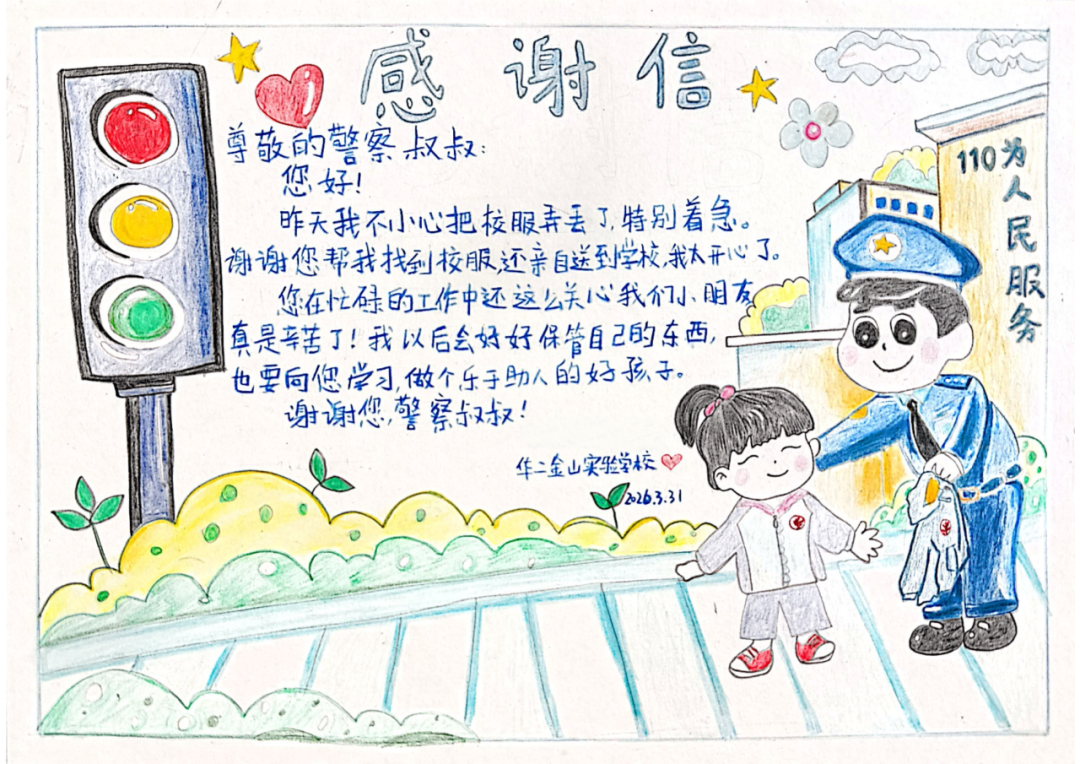 感谢信
尊敬的警察叔叔：
您好！
昨天我不小心把校服弄丢了，特别着急。
谢谢您帮我找到校服，还亲自送到学校，我太开心了。
您在忙碌的工作中还这么关心我们小朋友
真是辛苦了！我以后会好好保管自己的东西，
也要向您学习，做个乐于助人的好孩子。
谢谢您，警察叔叔！
华二金山实验学校
2026.3.31
110
为人民服务